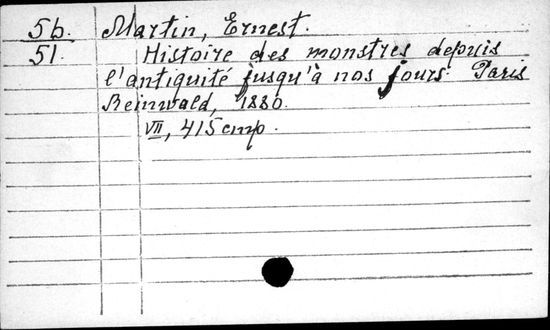 5б. Martin, Ernest.
51. Histoire des monstres depuis
l'antiquité jusqu'à nos jours. Paris
Reinwald, 1880.
VII, 415 стр.